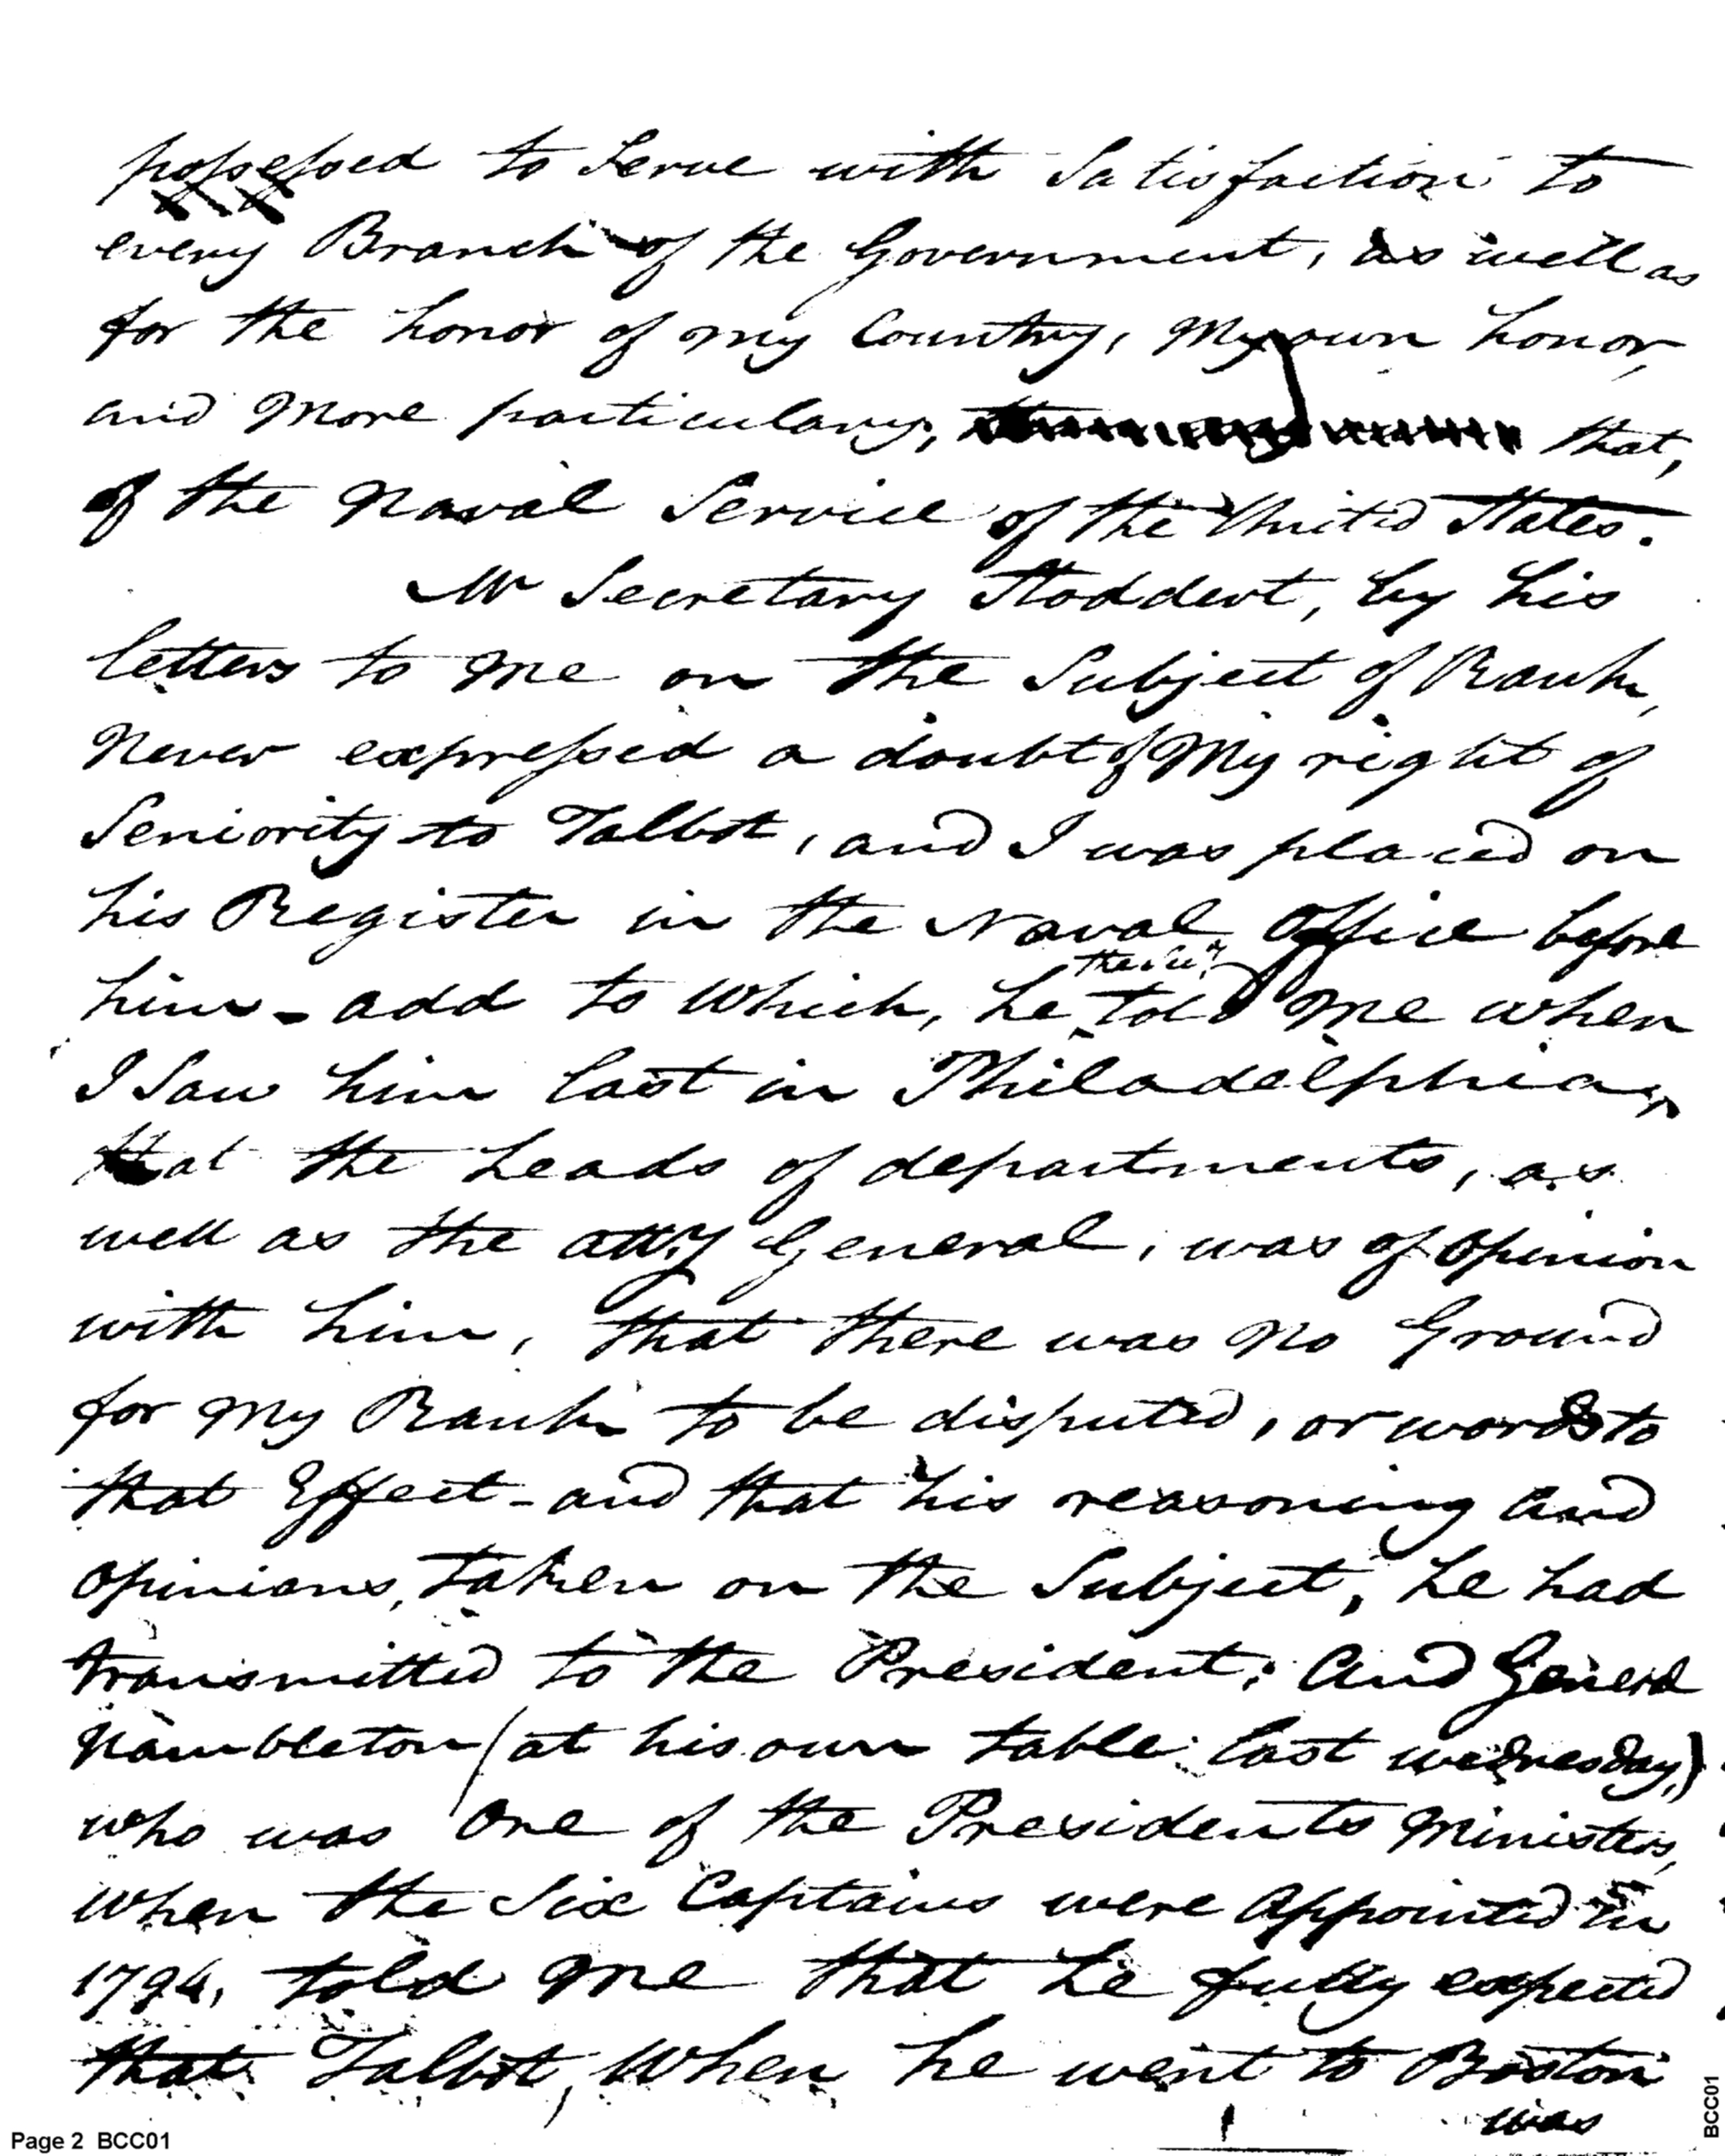 possessed to Serve with Satisfaction to
every Branch of the Government, as well as
for the honor of my Country, My own honor,
and More particulary, that,
of the Naval Service of the United States.
Mr Secretary Stoddert, by his
letters to me on the Subject of Rank,
Never expressed a doubt of My right of
Seniority to Talbot, and I was placed on
his Register in the Naval Office before
him - add to which, he told me when
I Saw him last in Philadelphia,
that the heads of departments, as
well as the atty General, was of Opinion
with him, that there was no Ground
for my Rank to be disputed, or words to
that Effect - and that his reasoning and
Opinions, taken on the Subject, he had
transmitted to the President; And General
Hambleton (at his own table last wednesday,)
who was One of the Presidents Ministers,
when the Six Captains were Appointed in
1794, told me that he fully expected
that Talbot, When he went to Boston
was
Page 2 BCC01
BCC01